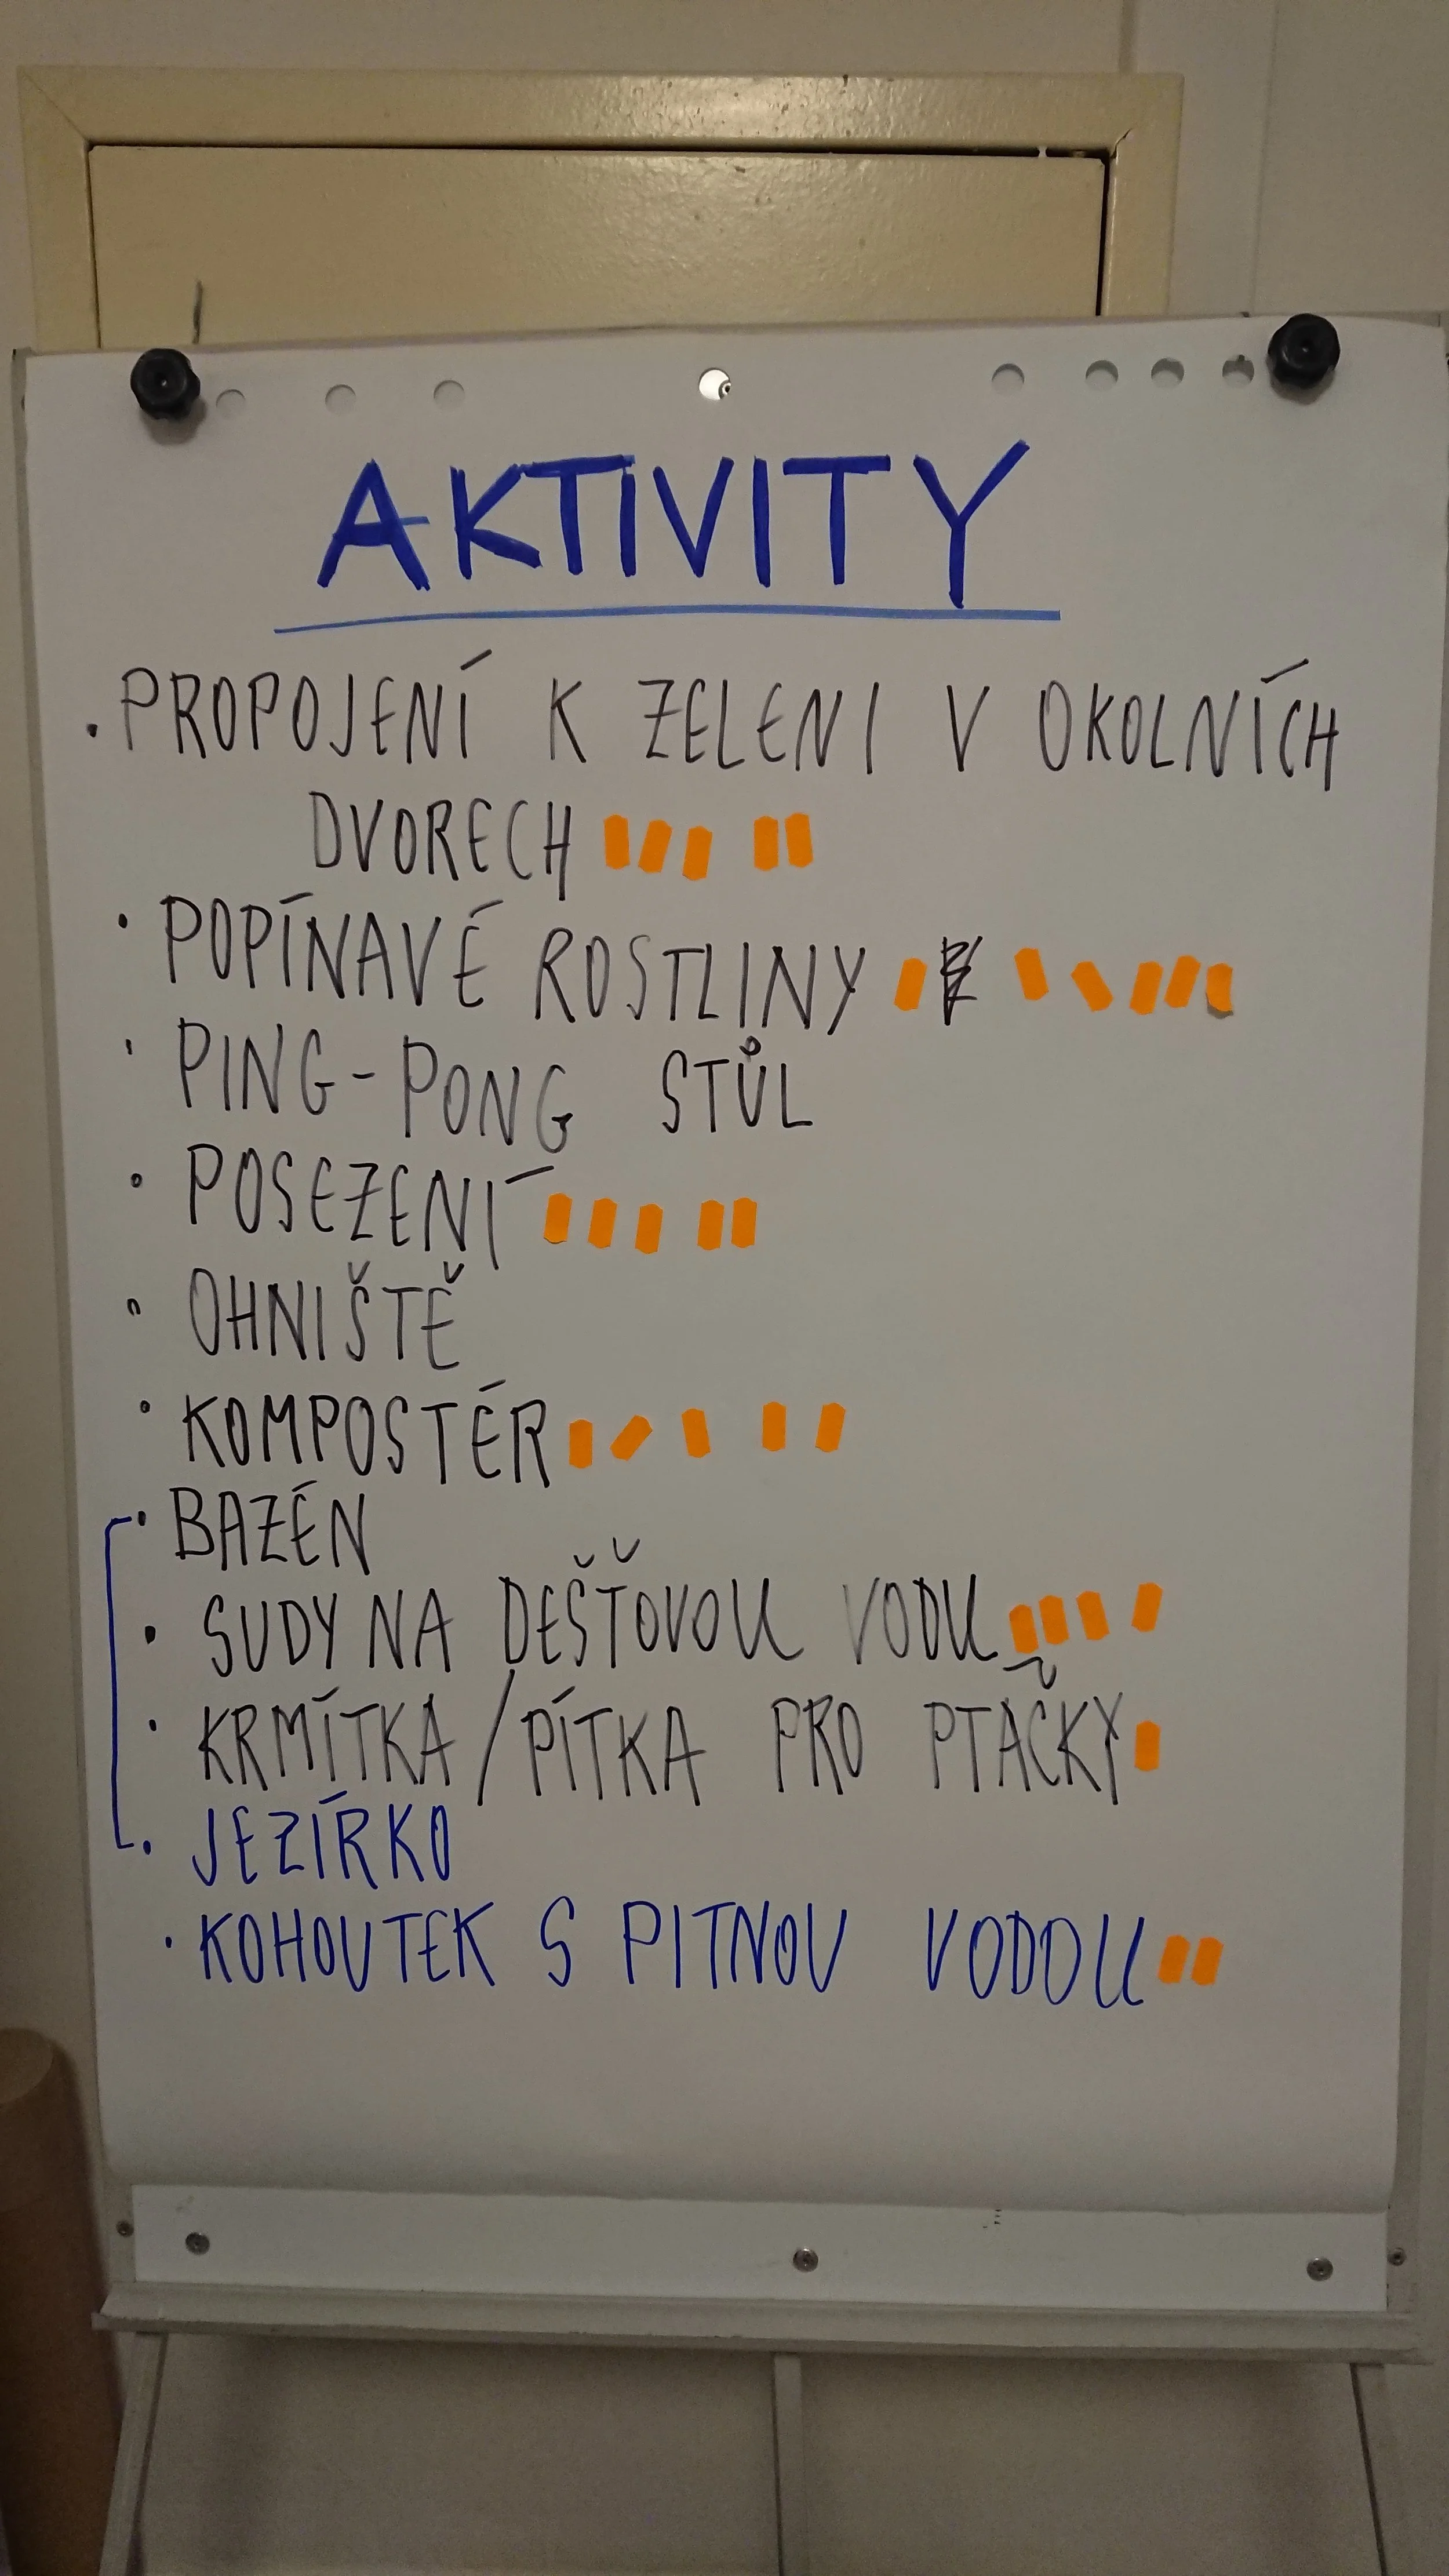 AKTIVITY
• PROPOJENÍ K ZELENI V OKOLNÍCH
DVORECH
• POPÍNAVÉ ROSTLINY
• PING-PONG STŮL
• POSEZENÍ
• OHNIŠTĚ
• KOMPOSTÉR
• BAZÉN
• SUDY NA DEŠŤOVOU VODU
• KRMÍTKA/PÍTKA PRO PTAČKY
• JEZÍRKO
• KOHOUTEK S PITNOU VODOU